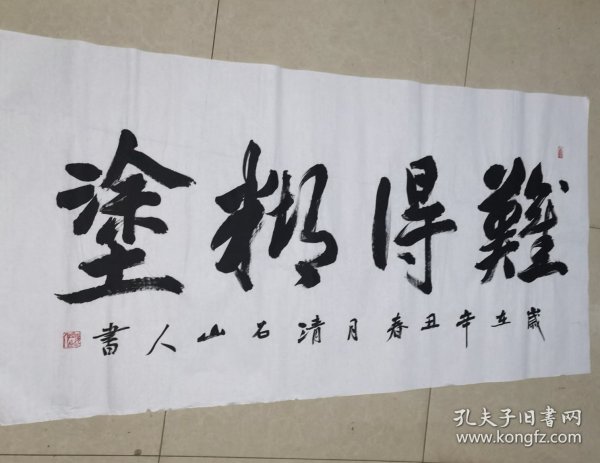 難得糊塗
歲在辛丑春月清石山人書
孔夫子旧書网
www.kongfz.com